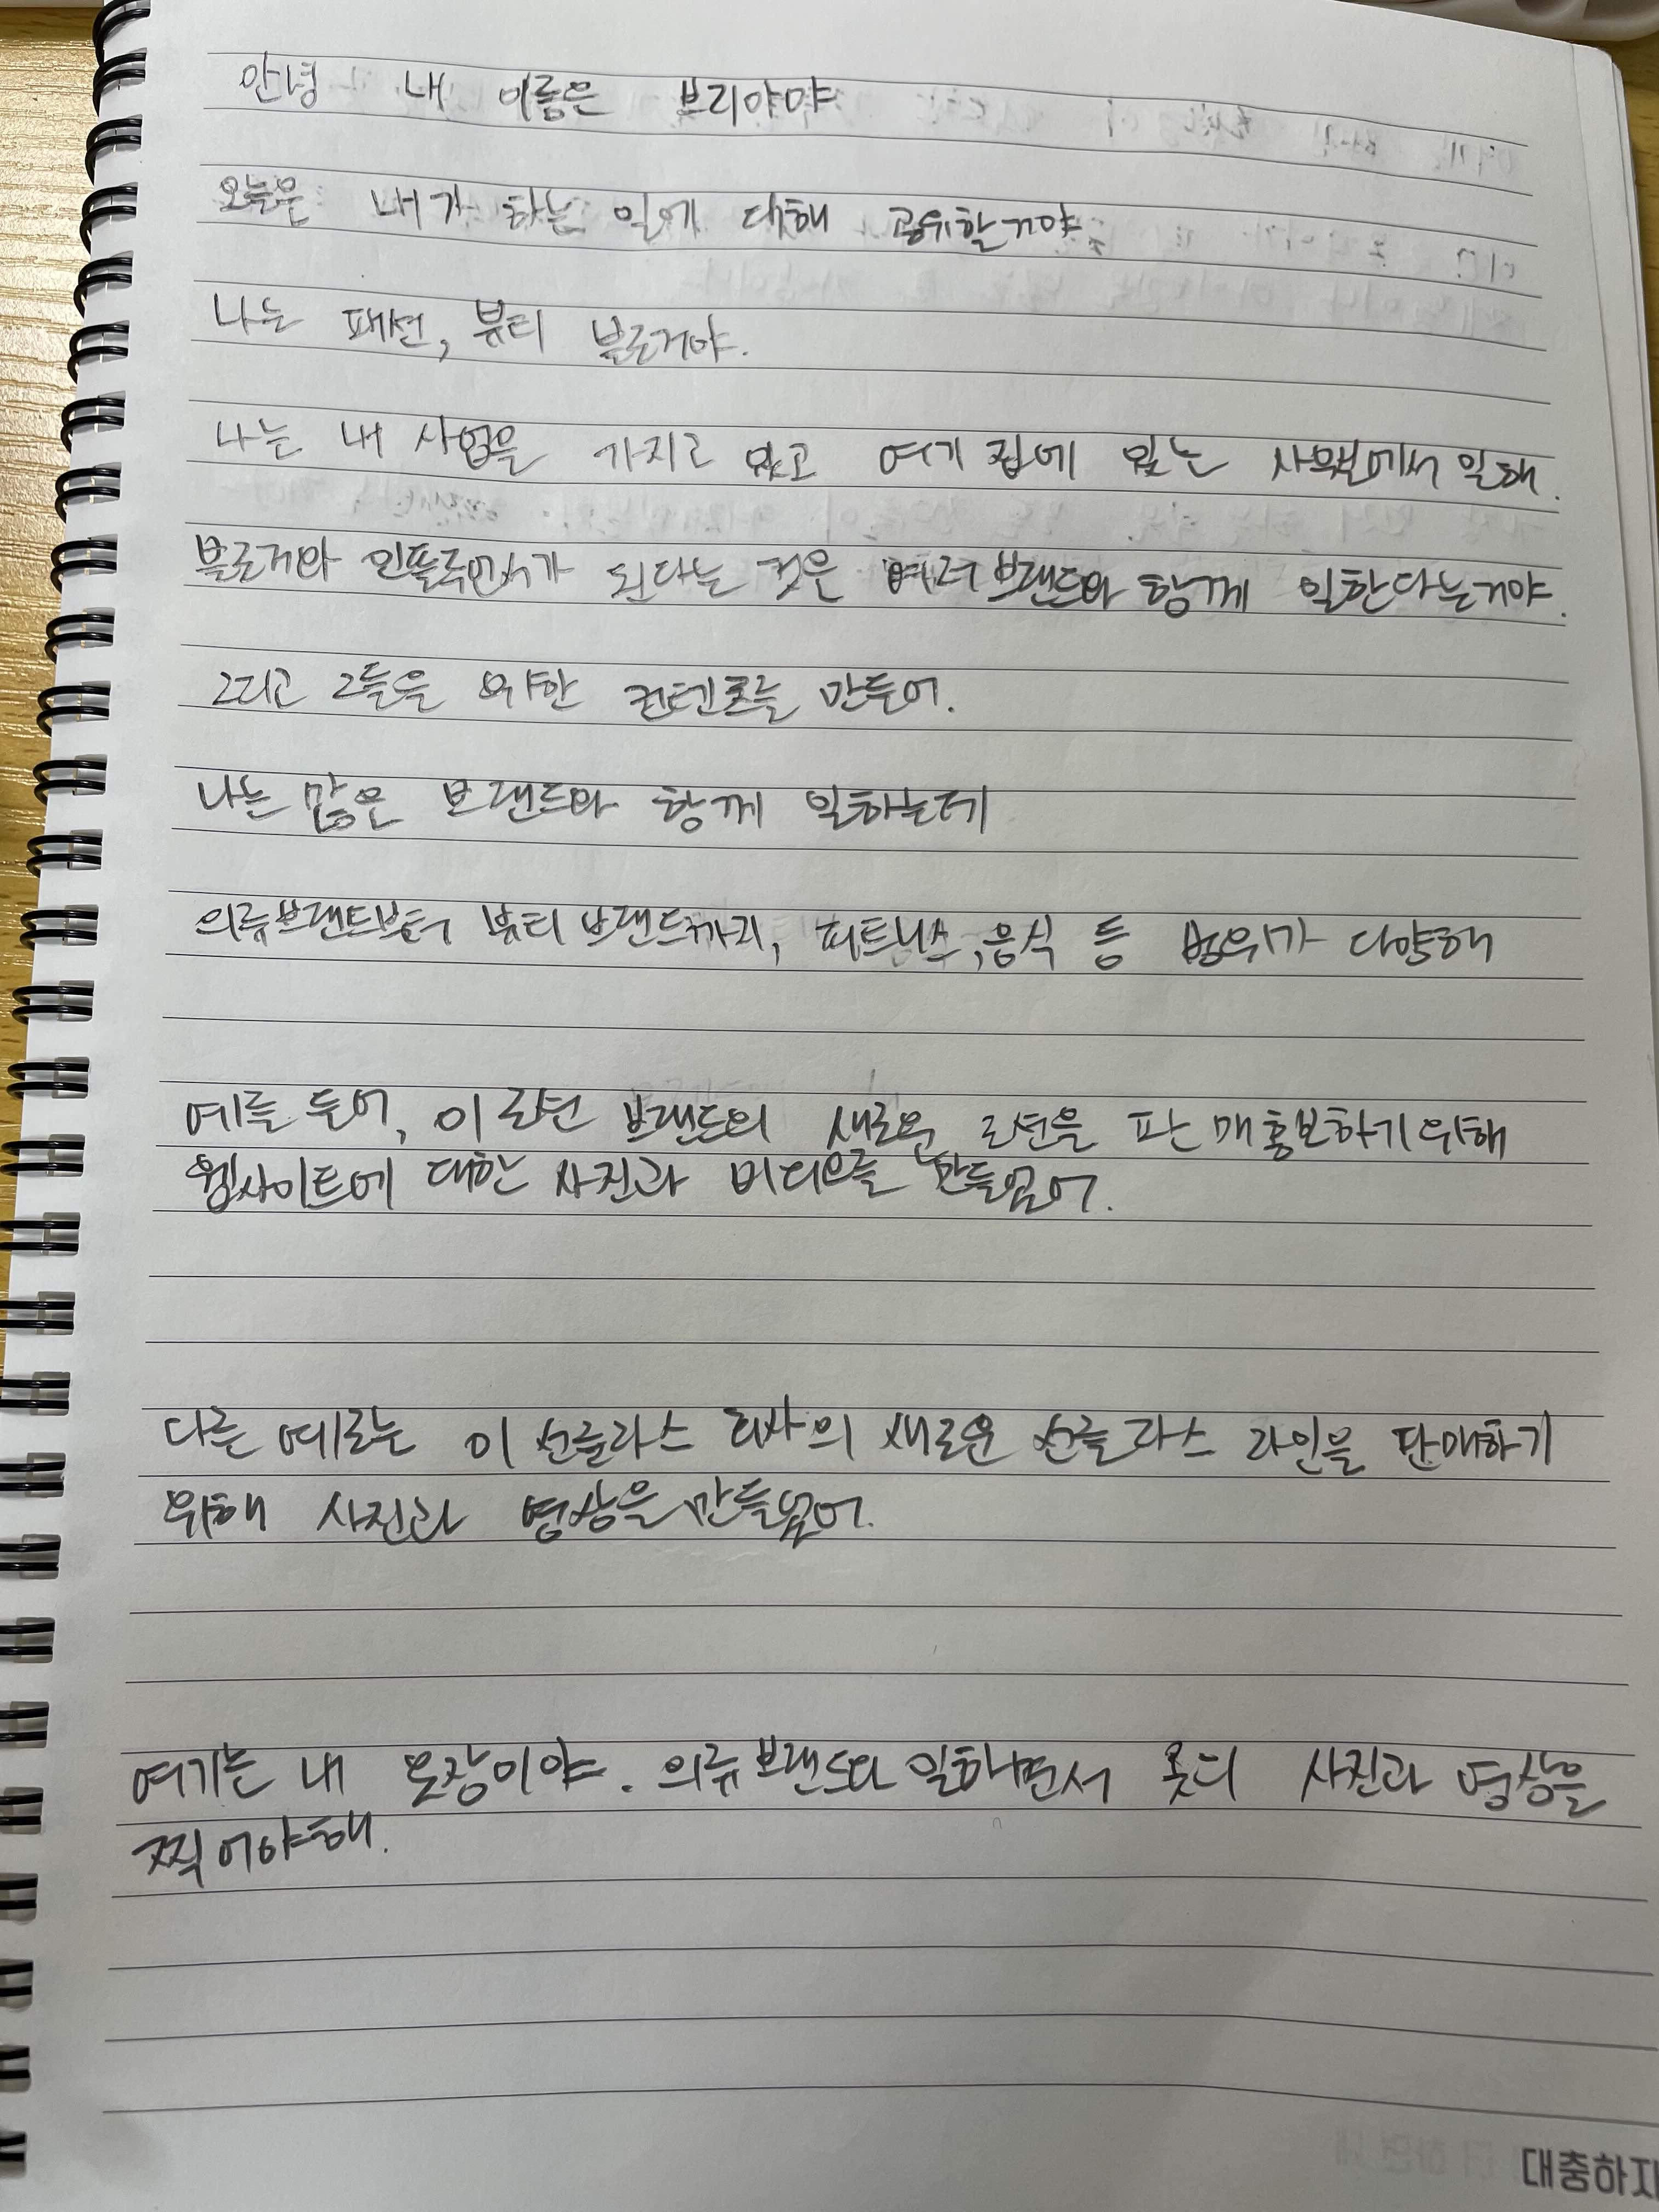 안녕 내 이름은 브리야야
오늘은 내가 하는 일에 대해 공유할거야.
나는 패션, 뷰티 블로거야.
나는 내 사업을 가지고 있고 여기 집에 있는 사무실에서 일해.
블로거와 인플루언서가 된다는 것은 여러 브랜드와 함께 일한다는거야.
그리고 그들을 위한 컨텐츠를 만들어.
나는 많은 브랜드와 함께 일하는데
의류브랜드부터 뷰티 브랜드까지, 피트니스, 음식 등 범위가 다양해
예를 들어, 이 로션 브랜드의 새로운 로션을 판매홍보하기위해
웹사이트에 대한 사진과 비디오를 만들었어.
다른 예로는 이 선글라스 회사의 새로운 선글라스 라인을 판매하기
위해 사진과 영상을 만들었어.
여기는 내 옷장이야. 의류브랜드와 일하면서 옷의 사진과 영상을
찍어야해.
대충하지